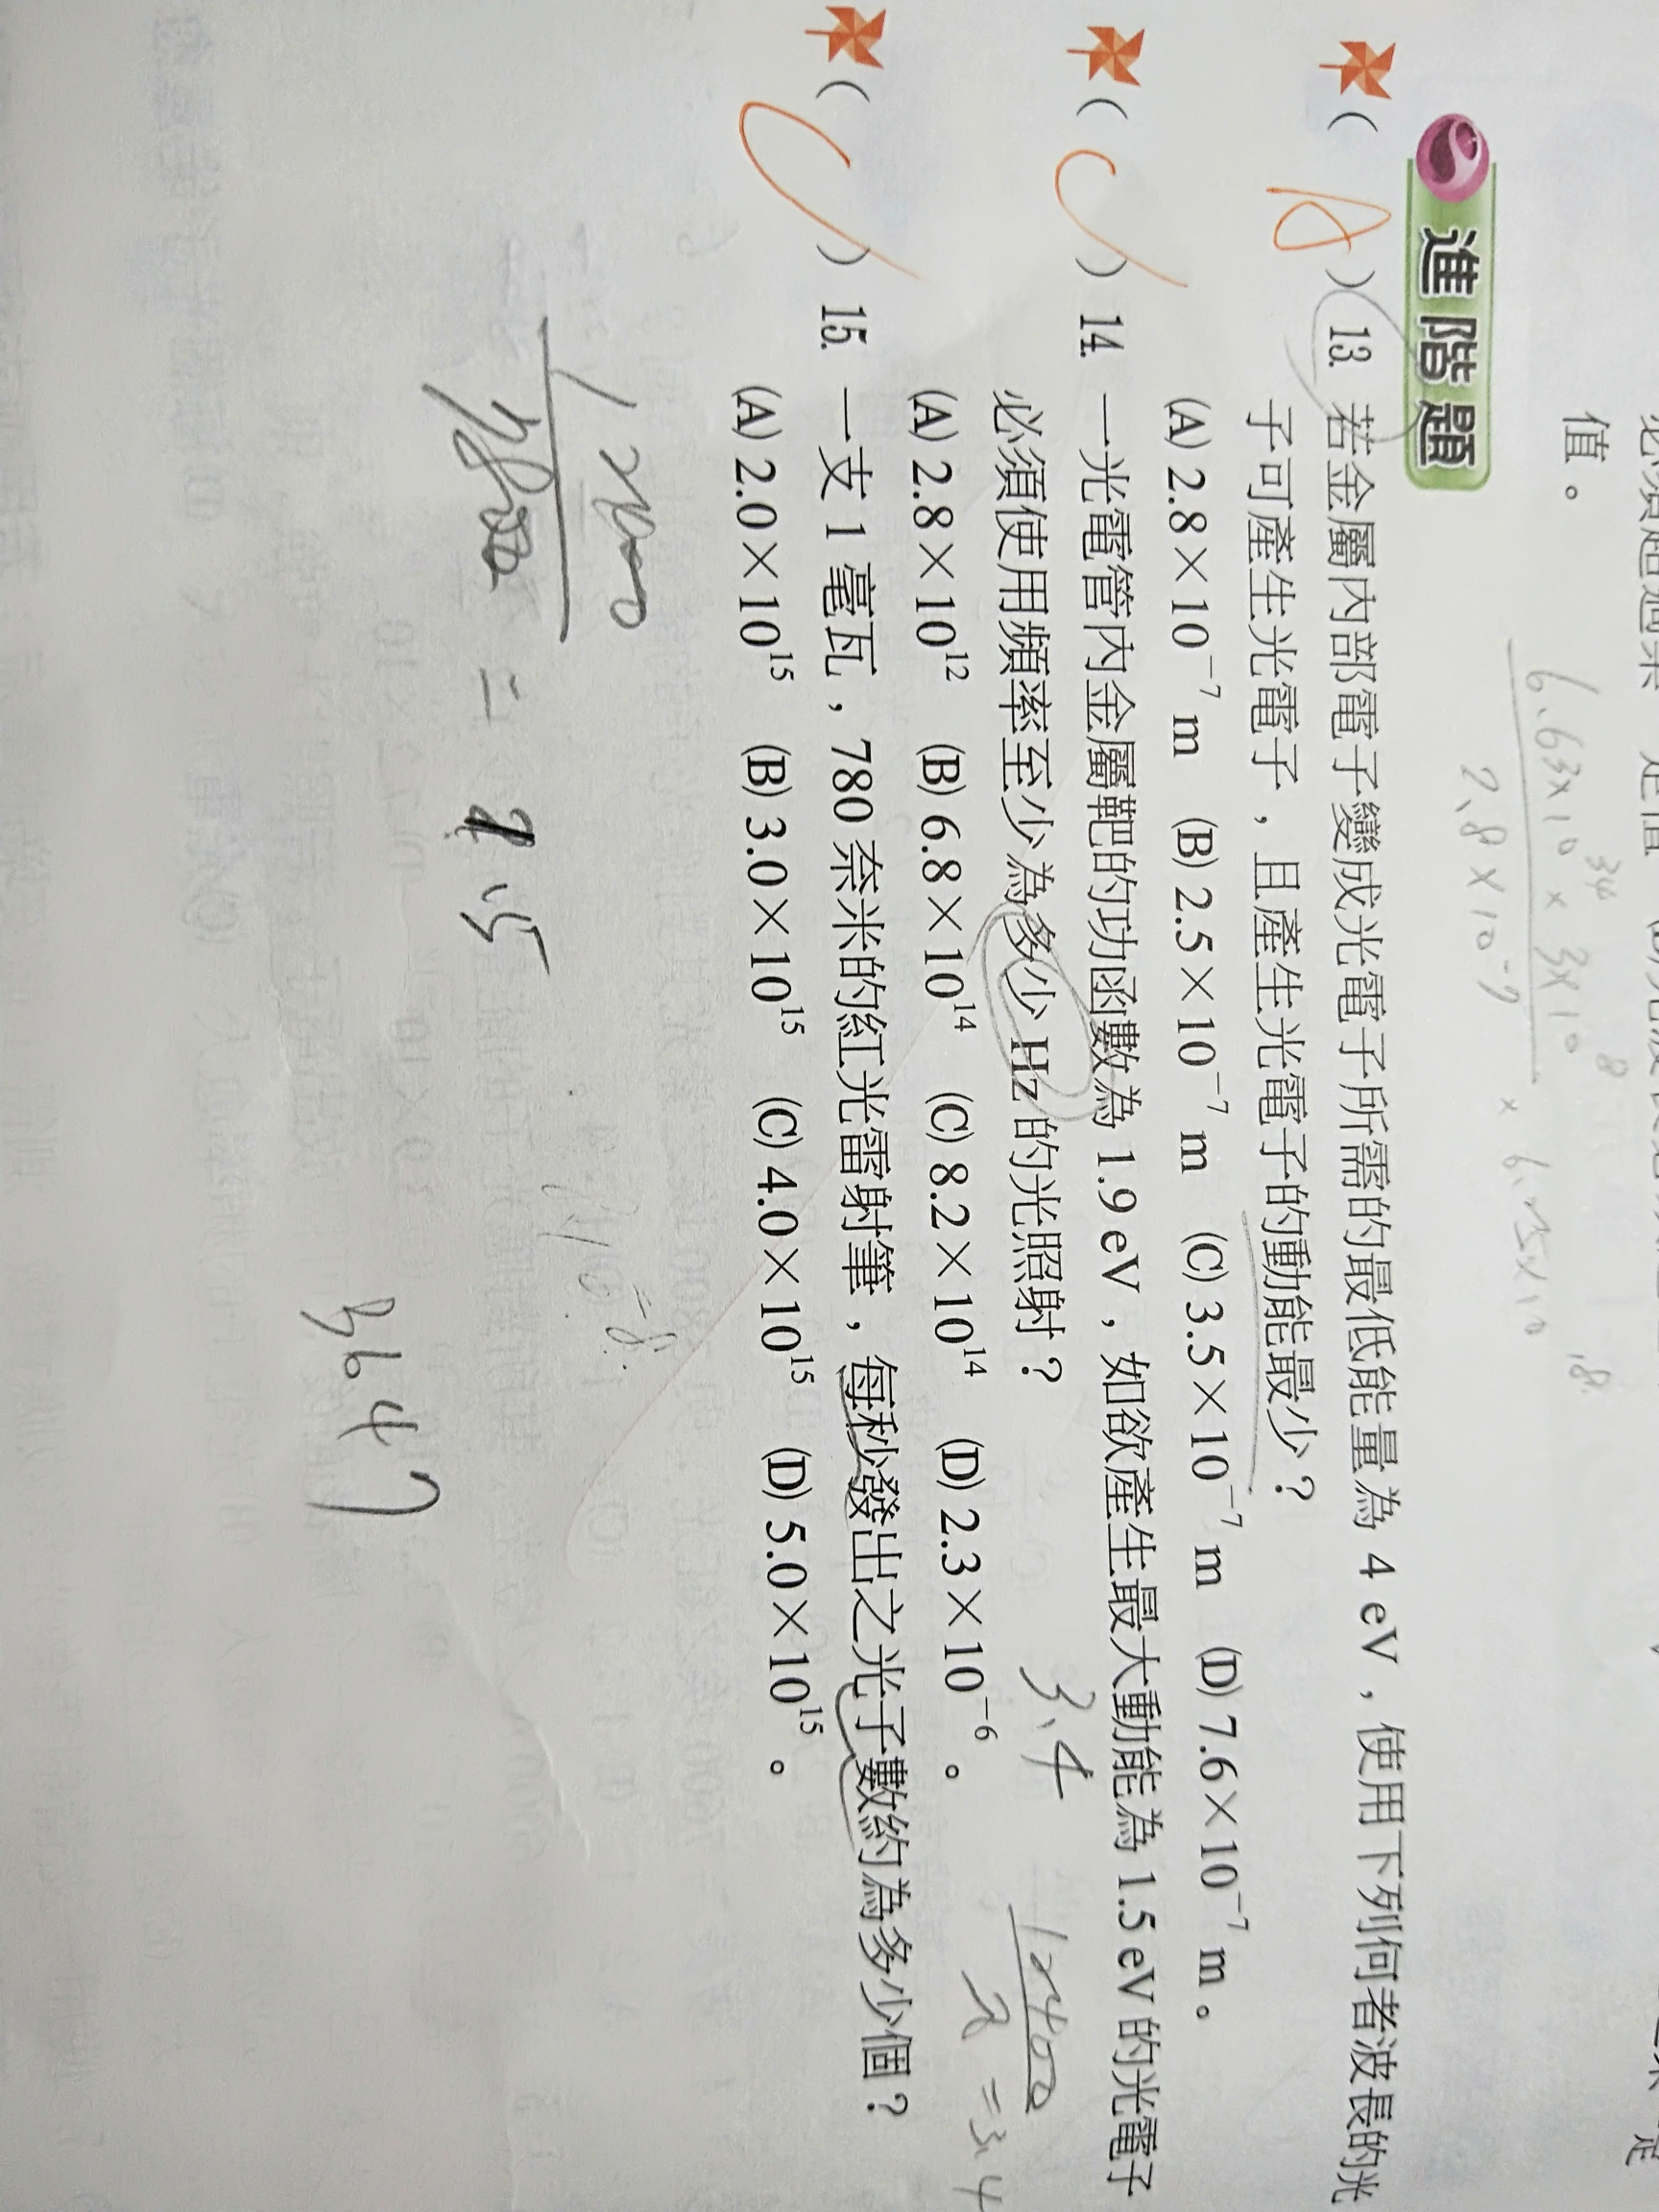 值。
6.63×10 34 × 3×10 8
7.8×10
進階題
( A ) 13. 若金屬內部電子變成光電子所需的最低能量為 4 eV，使用下列何者波長的光
子可產生光電子，且產生光電子的動能最少？
(A) 2.8×10⁻⁷ m (B) 2.5×10⁻⁷ m (C) 3.5×10⁻⁷ m (D) 7.6×10⁻⁷ m。
( C ) 14. 一光電管內金屬靶的功函數為 1.9 eV，如欲產生最大動能為 1.5 eV 的光電子
必須使用頻率至少為多少 Hz 的光照射？
3.4
(A) 2.8×10¹² (B) 6.8×10¹⁴ (C) 8.2×10¹⁴ (D) 2.3×10⁻⁶。
= 3.4
( C ) 15. 一支 1 毫瓦，780 奈米的紅光雷射筆，每秒發出之光子數約為多少個？
(A) 2.0×10¹⁵ (B) 3.0×10¹⁵ (C) 4.0×10¹⁵ (D) 5.0×10¹⁵。